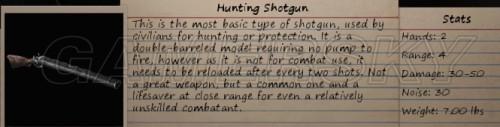 Hunting Shotgun
This is the most basic type of shotgun, used by
civilians for hunting or protection. It is a
double-barreled model requiring no pump to
fire, however as it is not for combat use, it
needs to be reloaded after every two shots. Not
a great weapon, but a common one and a
lifesaver at close range for even a relatively
unskilled combatant.
Stats
Hands: 2
Range: 4
Damage: 30-50
Noise: 30
Weight: 7.00 lbs